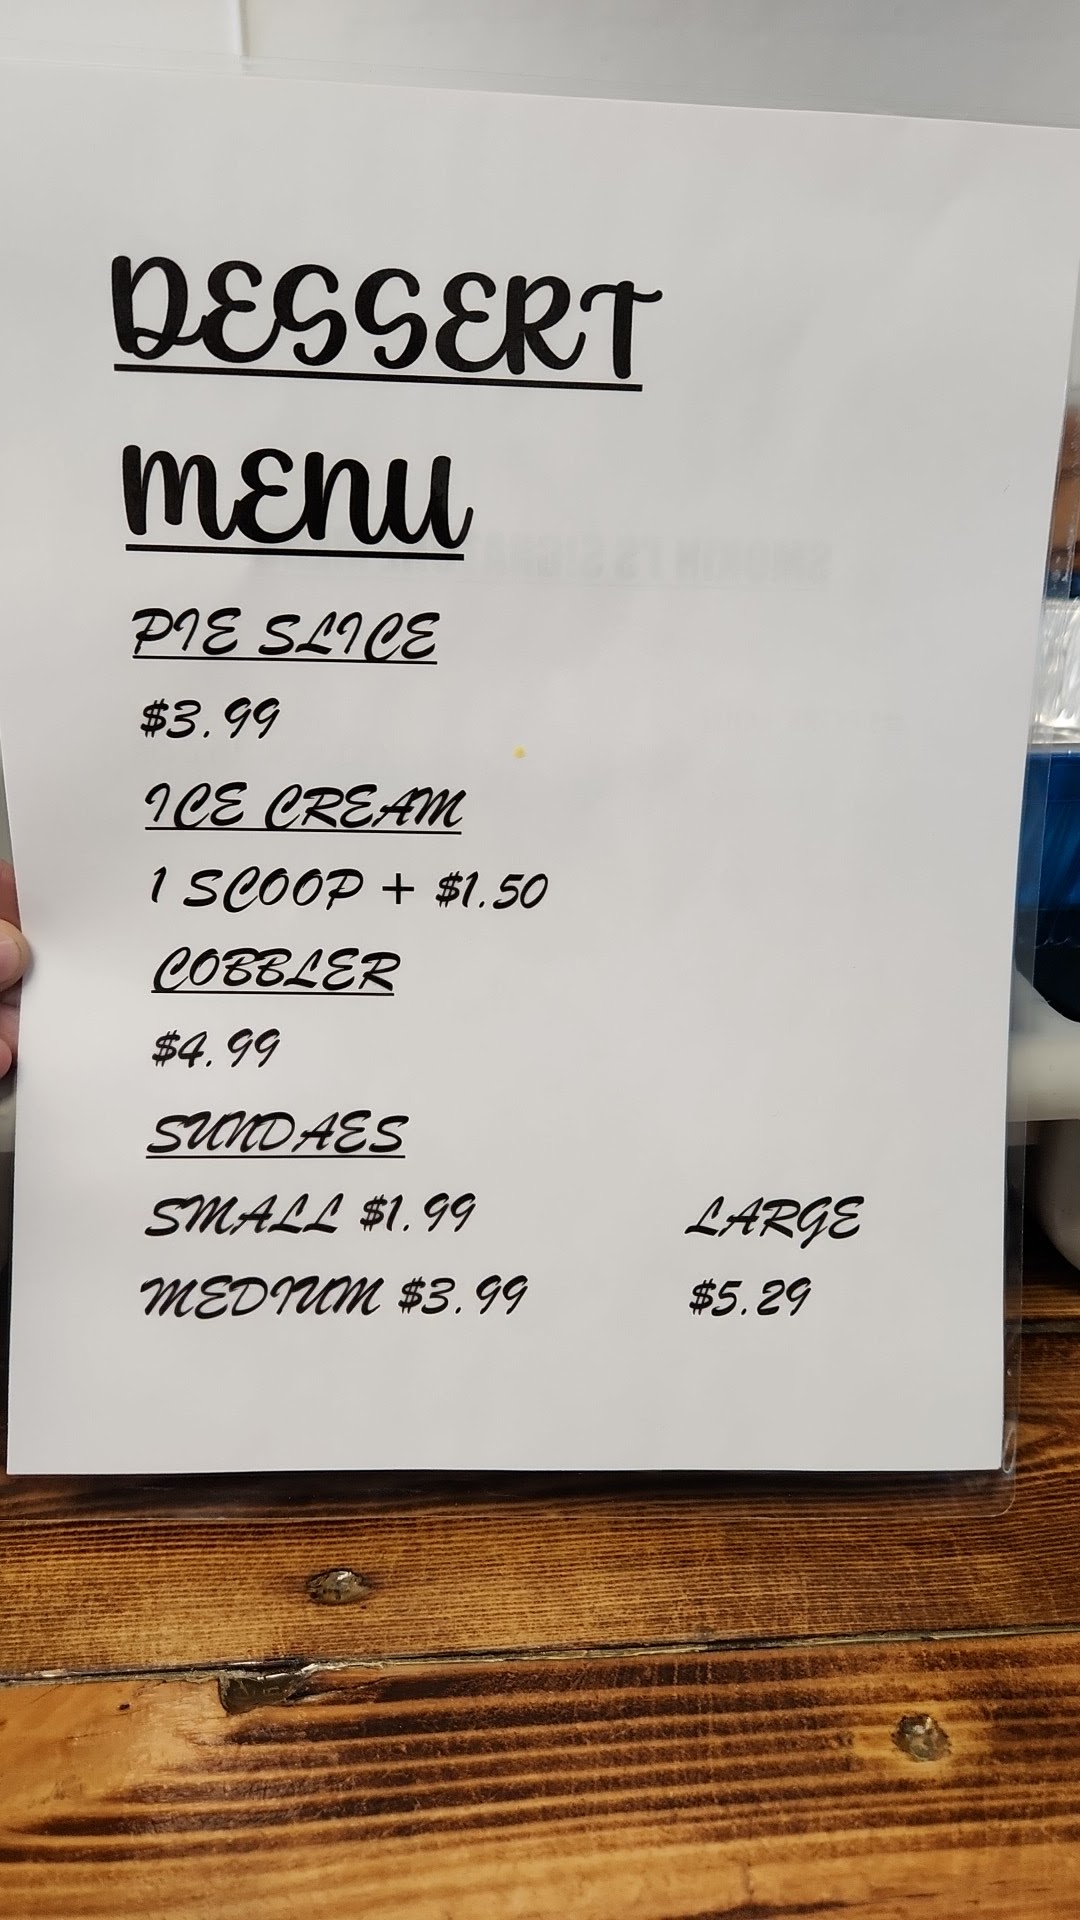 DESSERT
MENU
PIE SLICE
$3.99
ICE CREAM
1 SCOOP + $1.50
COBBLER
$4.99
SUNDAES
SMALL $1.99
MEDIUM $3.99
LARGE
$5.29